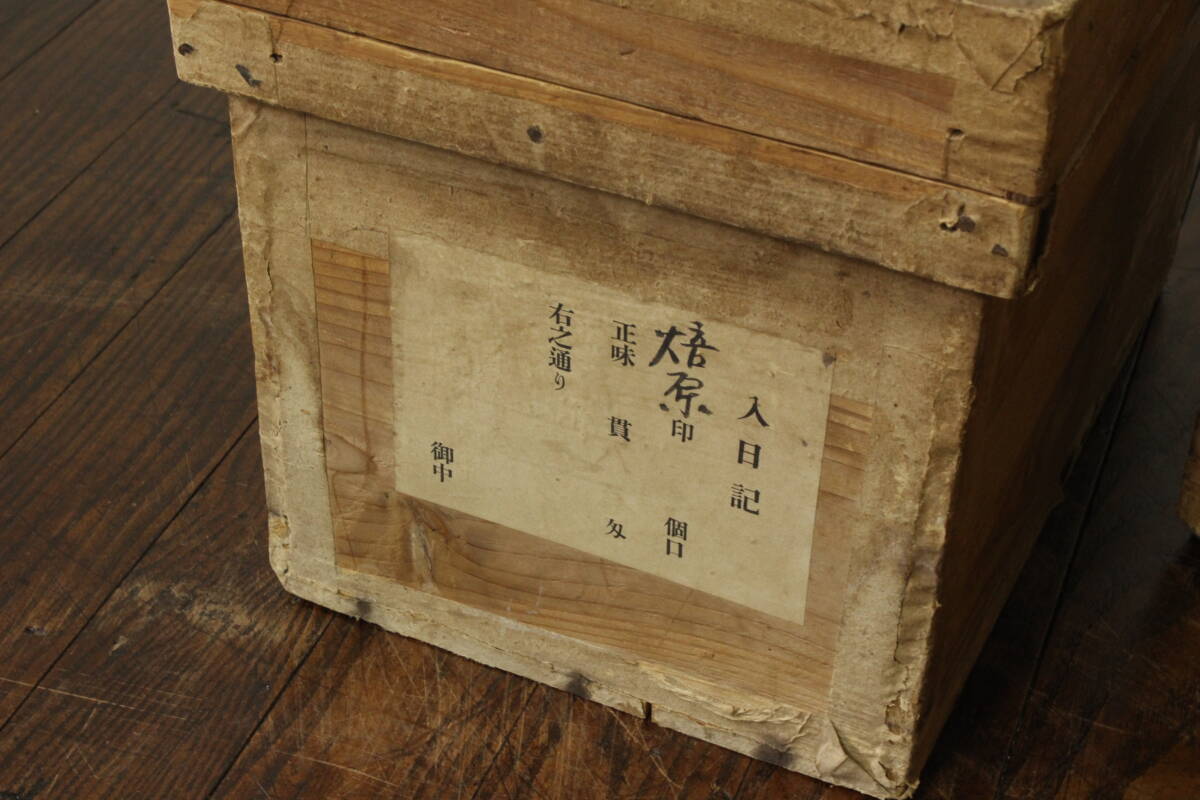 入日記
焙原印 個口
正味 貫 匁
右之通り
御中